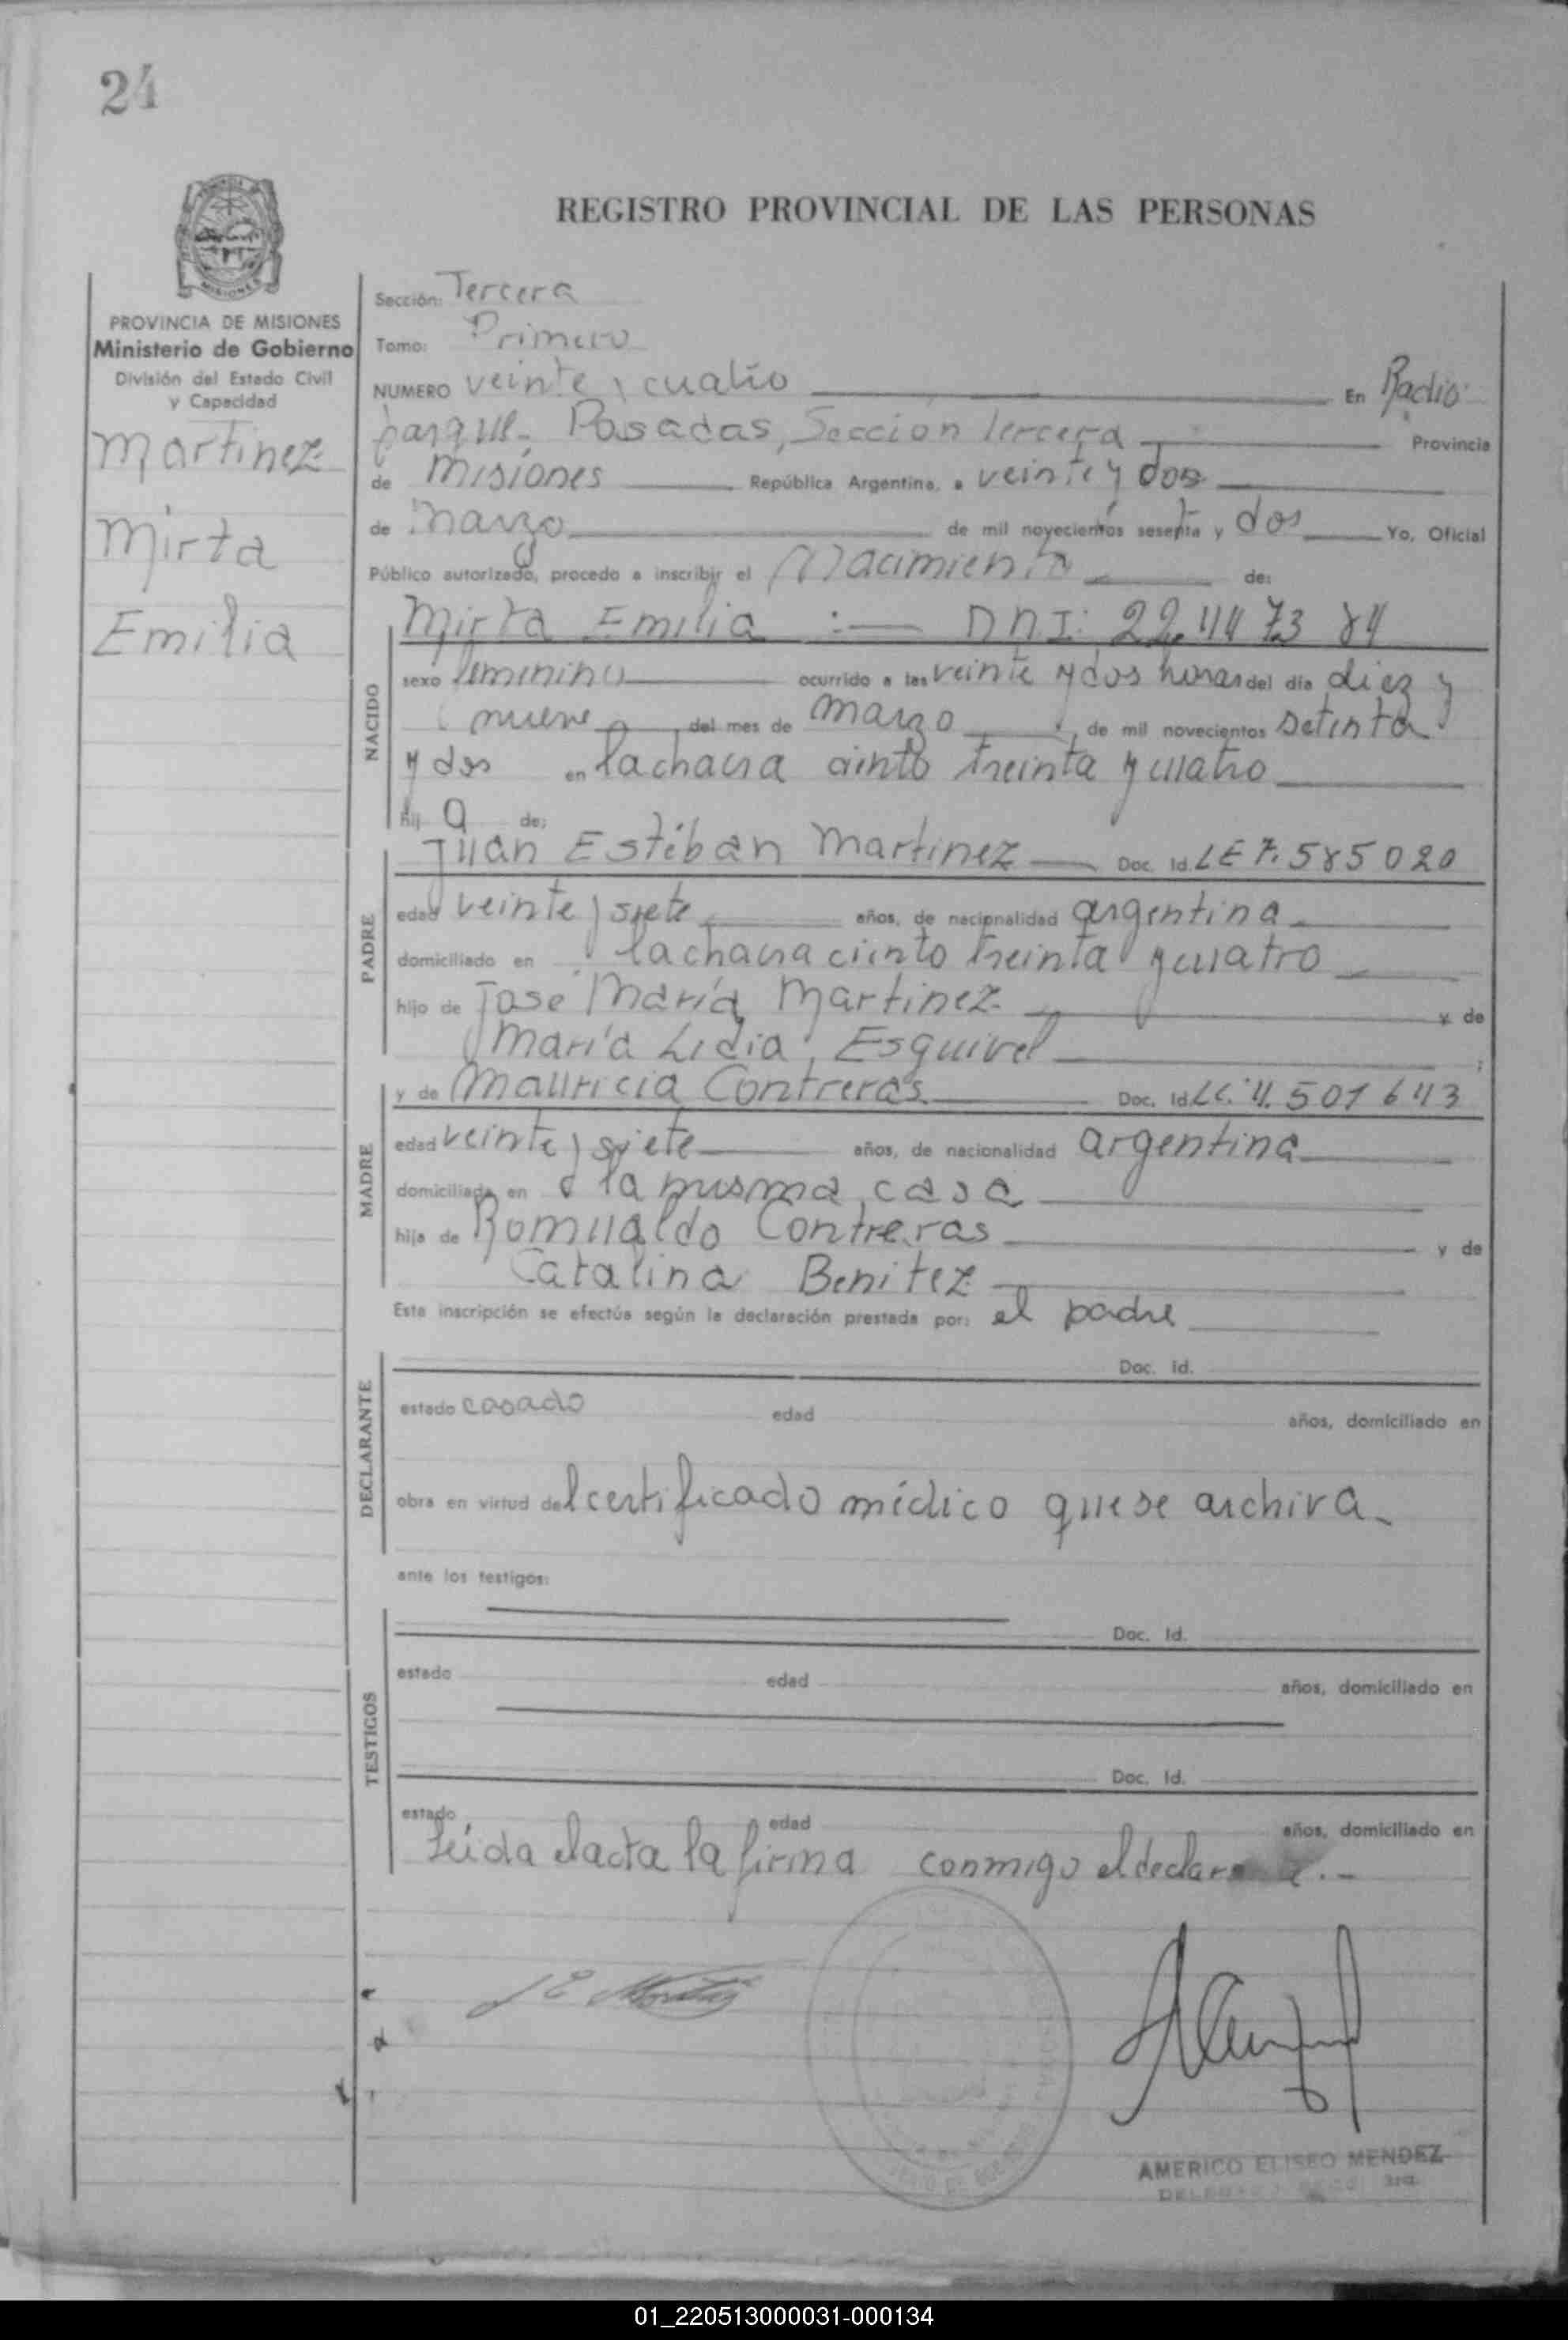 24
REGISTRO PROVINCIAL DE LAS PERSONAS
PROVINCIA DE MISIONES
Ministerio de Gobierno
División del Estado Civil
y Capacidad
Martinez
Mirta
Emilia
Sección: Tercera
Tomo: Primero
NUMERO veinte y cuatro En Radio
parque. Posadas, Sección tercera Provincia
de Misiones República Argentina, a veinte y dos
de Marzo de mil novecientos sesenta y dos Yo, Oficial
Público autorizado, procedo a inscribir el Nacimiento de:
NACIDO
Mirta Emilia :— DNI:
sexo femenino ocurrido a las veinte y dos horas del día diez y
nueve del mes de marzo de mil novecientos setenta
y dos en la chacra ciento treinta y cuatro
hij a de:
PADRE
Juan Estéban Martinez Doc. Id. LE 7.585020
edad veinte y siete años, de nacionalidad argentina
domiciliado en la chacra ciento treinta y cuatro
hijo de José María Martinez y de
María Lidia Esquivel ;
MADRE
y de Mauricia Contreras Doc. Id. LC. 4.501643
edad veinte y siete años, de nacionalidad argentina
domiciliada en la misma casa
hija de Romualdo Contreras y de
Catalina Benitez
Esta inscripción se efectúa según la declaración prestada por: el padre
DECLARANTE
Doc. Id.
estado casado edad años, domiciliado en
obra en virtud del certificado médico que se archiva.
ante los testigos:
TESTIGOS
Doc. Id.
estado edad años, domiciliado en
Doc. Id.
estado edad años, domiciliado en
Leída el acta la firma conmigo el
J E Martinez
AMERICO ELISEO MENDEZ
01_220513000031-000134